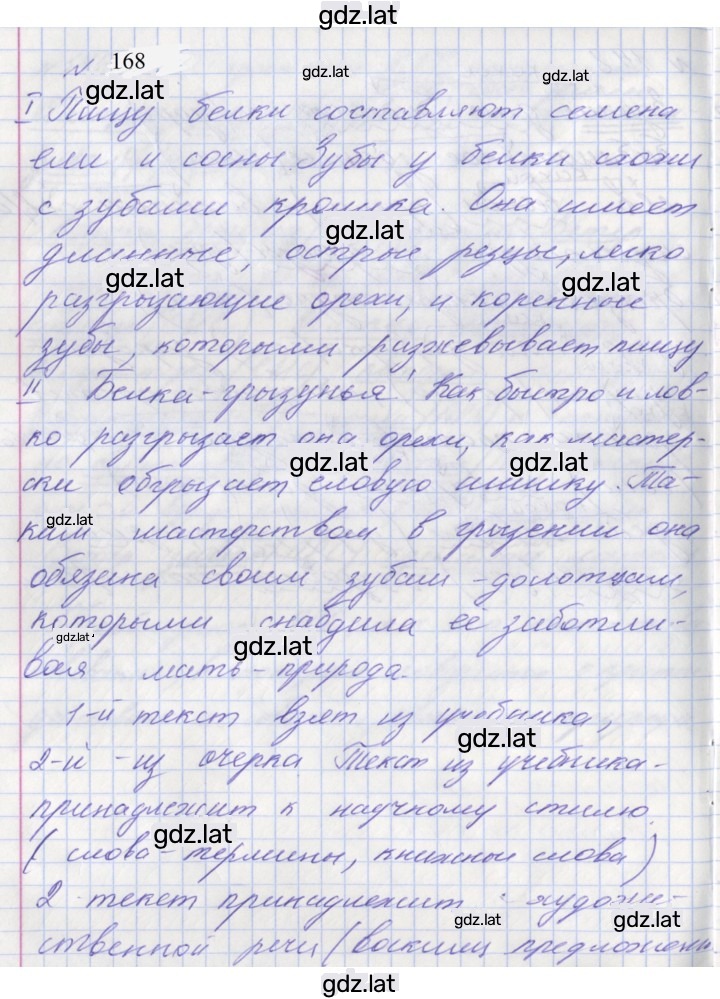 gdz.lat
№ 168
gdz.lat gdz.lat gdz.lat
I Пищу белки составляют семена
ели и сосны Зубы у белки схожи
с зубами кролика. Она имеет
gdz.lat
длинные, острые резцы, легко
gdz.lat gdz.lat
разгрызающие орехи, и коренные
зубы, которыми разжевывает пищу
II Белка-грызунья! Как быстро и лов-
ко разгрызает она орехи, как мастер-
gdz.lat gdz.lat
ски обгрызает еловую шишку. Та-
gdz.lat
ким мастерством в грызении она
обязана своим зубам-долотцам,
которыми снабдила ее заботли-
gdz.lat gdz.lat
вая мать-природа.
1-й текст взят из учебника,
gdz.lat
2-й - из очерка Текст из учебника-
принадлежит к научному стилю.
gdz.lat
(слова-термины, книжные слова)
2 текст принадлежит художе-
gdz.lat gdz.lat
ственной речи (восклиц предложени
gdz.lat